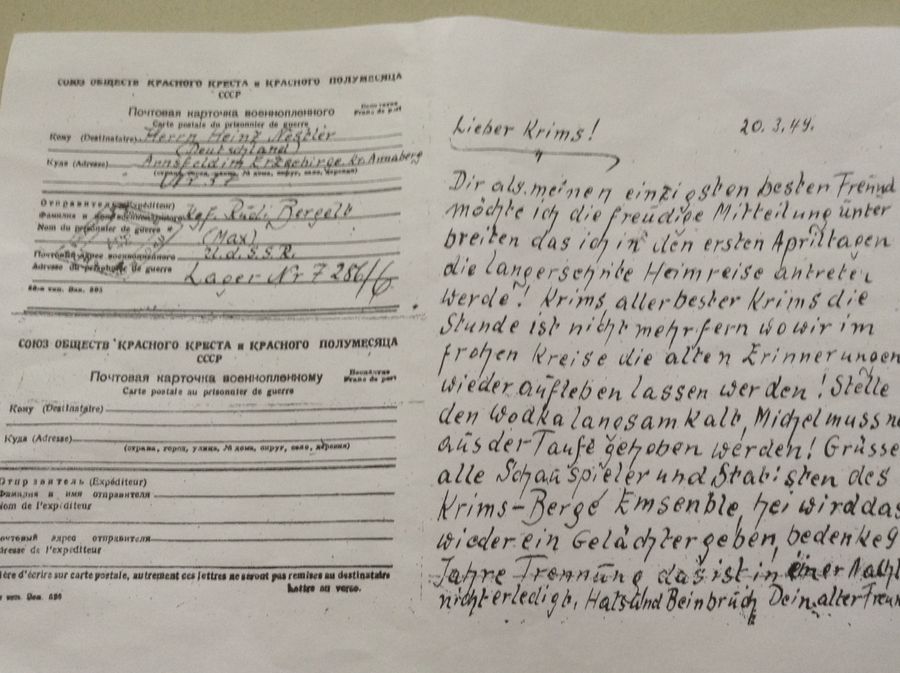 СОЮЗ ОБЩЕСТВ КРАСНОГО КРЕСТА и КРАСНОГО ПОЛУМЕСЯЦА
СССР
Почтовая карточка военнопленного
Carte postale du prisonnier de guerre
Бесплатно
Franc de port
Кому (Destinataire) Herrn Heinz Nestler
(Deutschland)
Куда (Adresse) Arnsfeld im Erzgebirge Kr. Annaberg
(страна, город, улица, № дома, округ, село, деревня)
Nr. 37
Отправитель (Expéditeur)
Фамилия и имя военнопленного Kgf. Rudi Bergelt
Nom du prisonnier de guerre
(Max)
Почтовый адрес военнопленного U.d.S.S.R.
Adresse du prisonnier de guerre Lager Nr 7286/6
СОЮЗ ОБЩЕСТВ КРАСНОГО КРЕСТА и КРАСНОГО ПОЛУМЕСЯЦА
СССР
Почтовая карточка военнопленному
Carte postale au prisonnier de guerre
Бесплатно
Franc de port
Кому (Destinataire)
Куда (Adresse)
(страна, город, улица, № дома, округ, село, деревня)
Отправитель (Expéditeur)
Фамилия и имя отправителя
Nom de l'expéditeur
почтовый адрес отправителя
dresse de l'expéditeur
ière d'écrire sur carte postale, autrement ces lettres ne seront pas remises au destinataire
Lieber Krims!
20.3.49.
Dir als meinen einzigsten besten Freund
möchte ich die freudige Mitteilung unter
breiten das ich in den ersten Apriltagen
die langersehnte Heimreise antreten
werde! Krims allerbester Krims die
Stunde ist nicht mehr fern wo wir im
frohen Kreise die alten Erinnerungen
wieder aufleben lassen werden! Stelle
den Wodka langsam kalt, Michel muss no
aus der Taufe gehoben werden! Grüsse
alle Schauspieler und Statisten des
Krims-Berge Emsenble, hei wird das
wieder ein Gelächter geben, bedenke 9
Jahre Trennung das ist in einer Nacht
nicht erledigt, Hals und Beinbruch Dein alter Freun